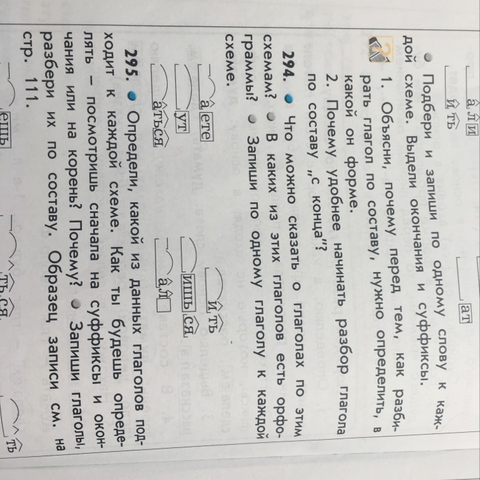 али
ить
ат
● Подбери и запиши по одному слову к каж-
дой схеме. Выдели окончания и суффиксы.
1. Объясни, почему перед тем, как разби-
рать глагол по составу, нужно определить, в
какой он форме.
2. Почему удобнее начинать разбор глагола
по составу „с конца“?
294. ● Что можно сказать о глаголах по этим
схемам? ● В каких из этих глаголов есть орфо-
граммы? ● Запиши по одному глаголу к каждой
схеме.
аете ить
ут ишься
аться ал
295. ● Определи, какой из данных глаголов под-
ходит к каждой схеме. Как ты будешь опреде-
лять — посмотришь сначала на суффиксы и окон-
чания или на корень? Почему? ● Запиши глаголы,
разбери их по составу. Образец записи см. на
стр. 111.
ешь ться ть